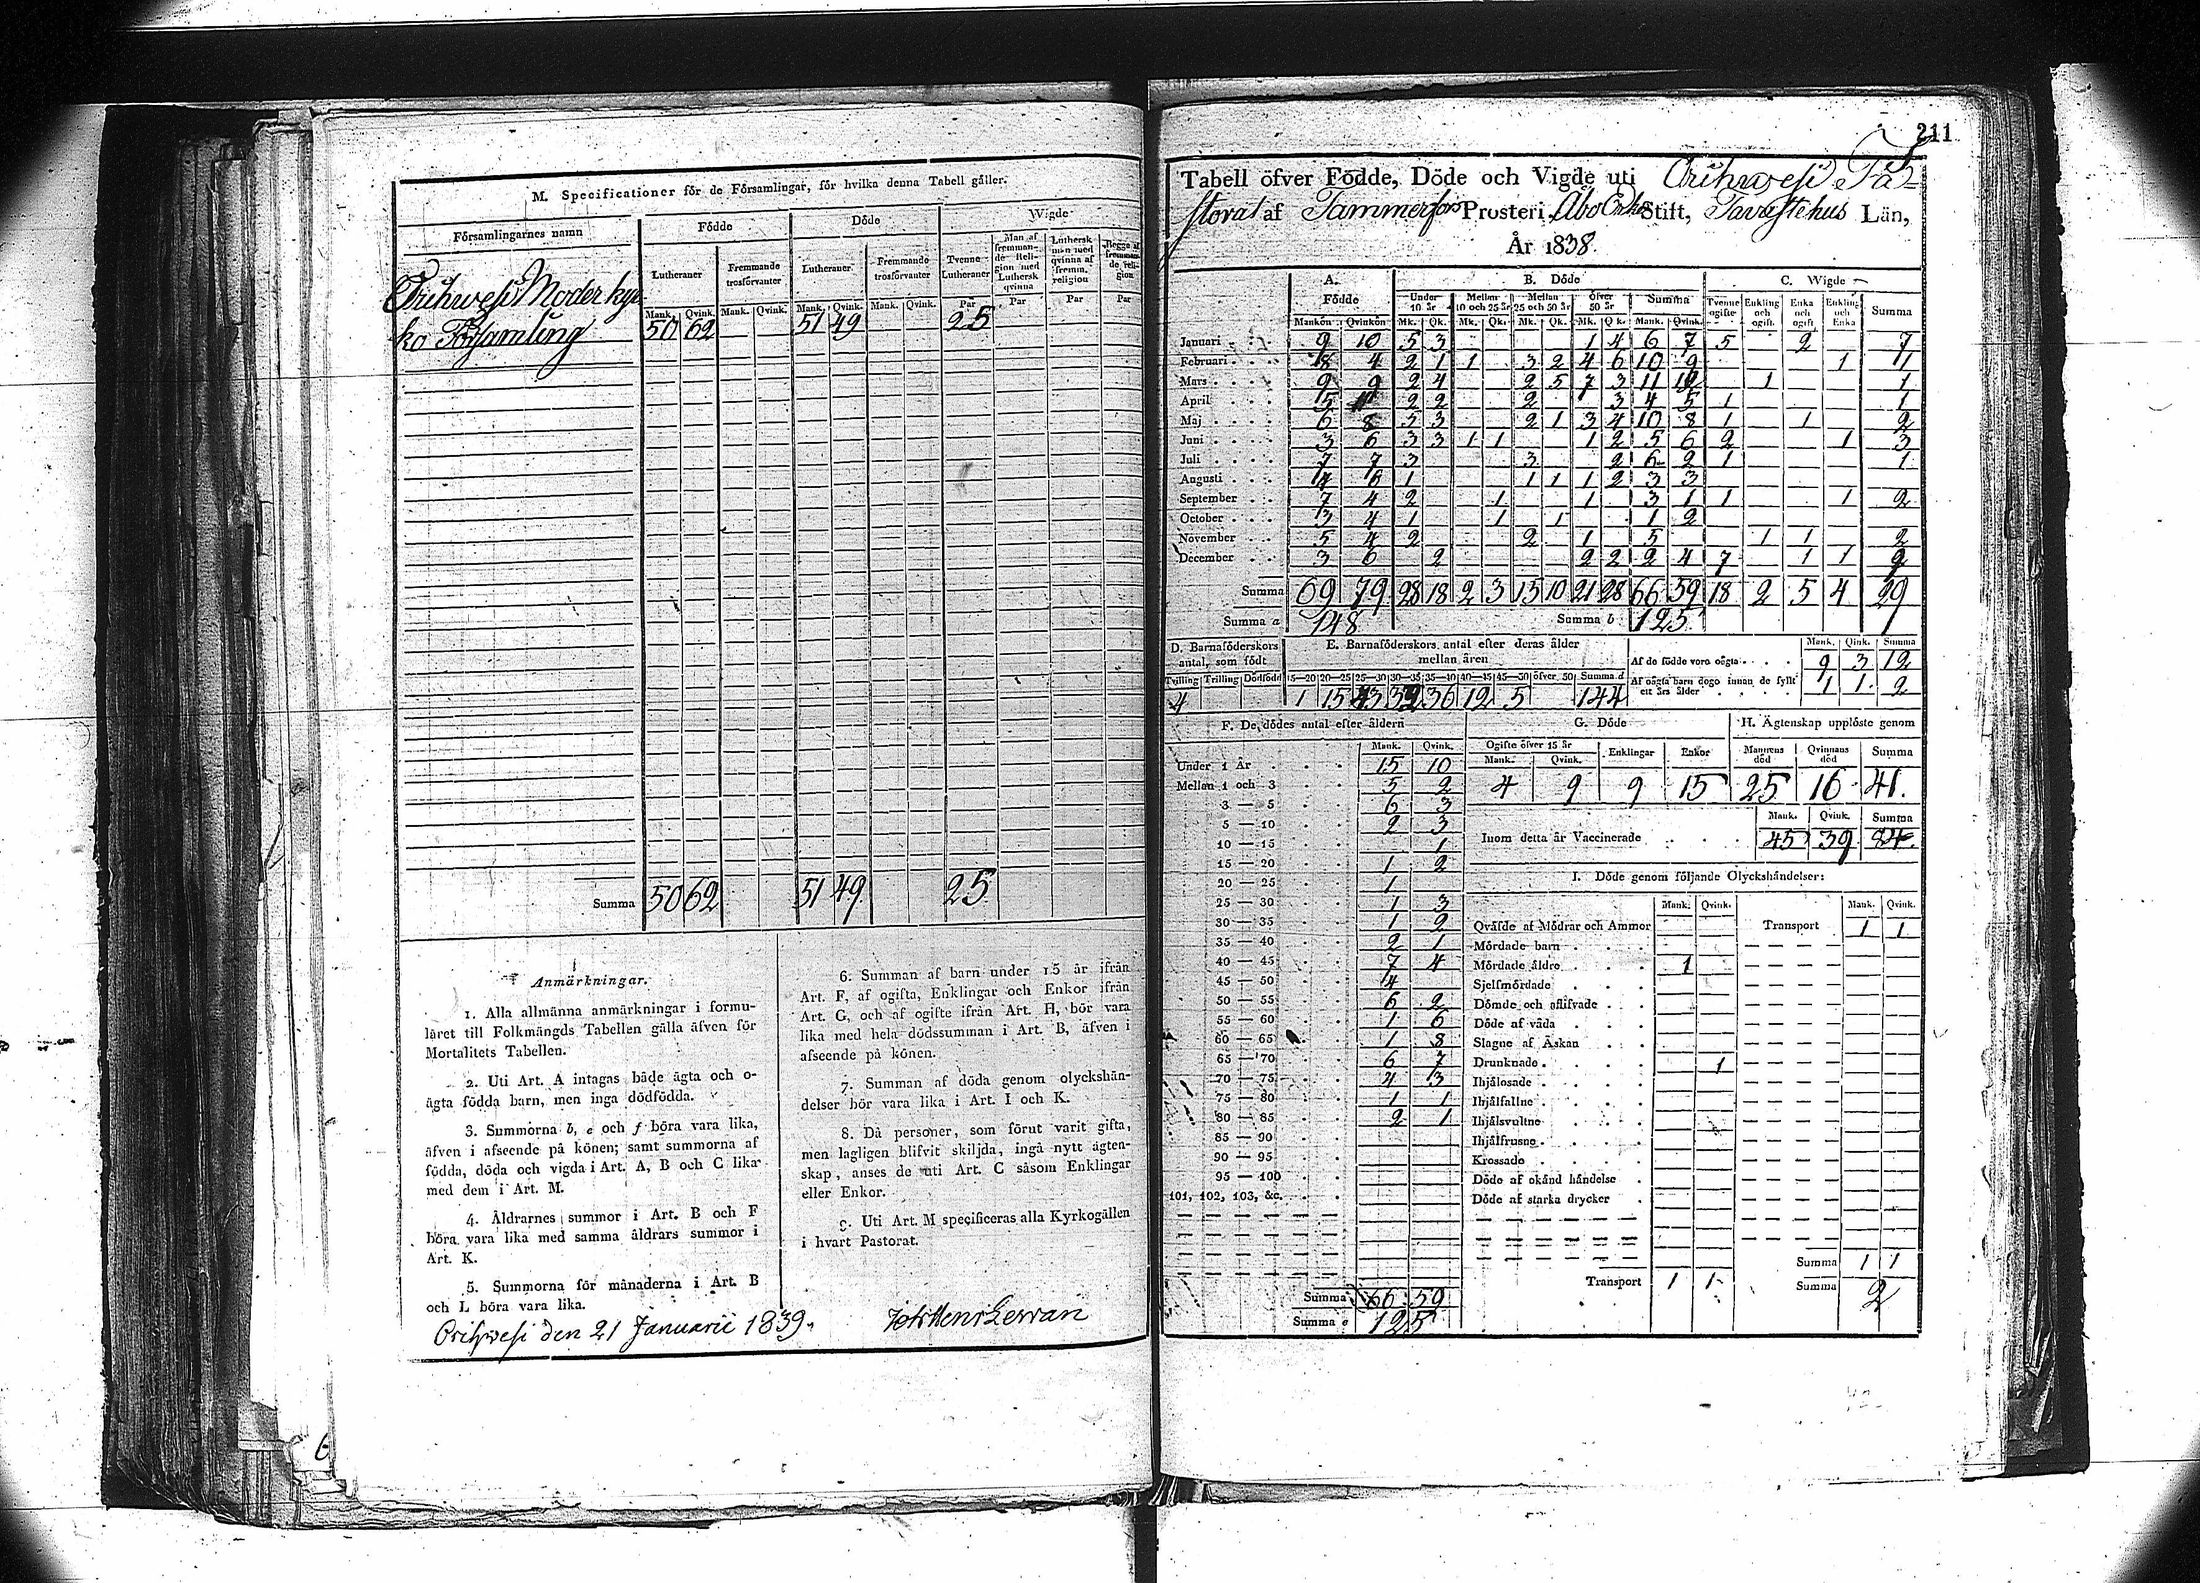 M. Specificationer för de Församlingar, för hvilka denna Tabell gäller.
Församlingarnes namn | Födde | Döde | Wigde
Lutheraner | Fremmande trosförvanter | Lutheraner | Fremmande trosförvanter | Tvenne Lutheraner | Man af fremmande Religion med Luthersk qvinna | Luthersk man med qvinna af fremm. religion | Begge af fremmande religion
Mank. Qvink. Mank. Qvink. Mank. Qvink. Mank. Qvink. Par Par Par Par
Orihwesi Moderkyr
ko Församling 50 62 51 49 25
Summa 50 62 51 49 25
Anmärkningar.
1. Alla allmänna anmärkningar i formu-
läret till Folkmängds Tabellen gälla äfven för
Mortalitets Tabellen.
2. Uti Art. A intagas både ägta och o-
ägta födda barn, men inga dödfödda.
3. Summorna b, e och f böra vara lika,
äfven i afseende på könen; samt summorna af
födda, döda och vigda i Art. A, B och C lika
med dem i Art. M.
4. Åldrarnes summor i Art. B och F
böra vara lika med samma åldrars summor i
Art. K.
5. Summorna för månaderna i Art. B
och L böra vara lika.
6. Summan af barn under 15 år ifrån
Art. F, af ogifta, Enklingar och Enkor ifrån
Art. G, och af ogifte ifrån Art. H, bör vara
lika med hela dödssumman i Art. B, äfven i
afseende på könen.
7. Summan af döda genom olyckshän-
delser bör vara lika i Art. I och K.
8. Då personer, som förut varit gifta,
men lagligen blifvit skiljda, ingå nytt ägten-
skap, anses de uti Art. C såsom Enklingar
eller Enkor.
9. Uti Art. M specificeras alla Kyrkogällen
i hvart Pastorat.
Orihwesi den 21 Januarii 1839.
211
Tabell öfver Födde, Döde och Vigde uti Orihwesi Pa-
storat af Tammerfors Prosteri, Åbo Erke Stift, Tavastehus Län,
År 1838.
A. Födde | B. Döde | C. Wigde
Under 10 år | Mellan 10 och 25 år | Mellan 25 och 50 år | Öfver 50 år | Summa | Tvenne ogifte | Enkling och ogift | Enka och ogift | Enkling och Enka | Summa
Mankön Qvinkön Mk. Qk. Mk. Qk. Mk. Qk. Mk. Qk. Mank. Qvink.
Januari 9 10 5 3 1 4 6 7 5 2 7
Februari 18 4 2 1 1 3 2 4 6 10 9 1 11
Mars 9 9 2 4 2 5 7 3 11 12 1 1
April 5 2 2 2 3 4 5 1 1
Maj 6 8 5 3 2 1 3 4 10 8 1 1 2
Juni 3 6 3 3 1 1 1 2 5 6 2 1 3
Juli 7 7 3 3 2 6 2 1 1
Augusti 6 1 1 1 1 2 3 3
September 7 4 2 1 1 3 1 1 1 2
October 3 4 1 1 1 1 2
November 5 4 2 2 1 5 1 1 2
December 3 6 2 2 2 2 4 7 1 1 9
Summa 69 79 28 18 2 3 15 10 21 28 66 59 18 2 5 4 29
Summa a 148 Summa b 125
D. Barnaföderskors antal, som födt
Tvilling Trilling Dödfödd
4
E. Barnaföderskors antal efter deras ålder
mellan åren
15—20 20—25 25—30 30—35 35—40 40—45 45—50 öfver 50 Summa d
1 15 43 32 36 12 5 144
Mank. Qink. Summa
Af de födde voro oägta 9 3 12
Af oägta barn dogo innan de fyllt
ett års ålder 1 1 2
F. De dödes antal efter åldern
Mank. Qvink.
Under 1 År 15 10
Mellan 1 och 3 5 2
3 — 5 6 3
5 — 10 2 3
10 — 15 1
15 — 20 1 2
20 — 25 1
25 — 30 1 3
30 — 35 1 2
35 — 40 2 1
40 — 45 7 4
45 — 50 4
50 — 55 6 2
55 — 60 1 6
60 — 65 1 8
65 — 70 6 7
70 — 75 4 3
75 — 80 1 1
80 — 85 2 1
85 — 90
90 — 95
95 — 100
101, 102, 103, &c.
Summa 66 59
Summa e 125
G. Döde
Ogifte öfver 15 år | Enklingar | Enkor
Mank. Qvink.
4 9 9 15
H. Ägtenskap upplöste genom
Mannens död | Qvinnans död | Summa
25 16 41.
Mank. Qvink. Summa
Inom detta år Vaccinerade 45 39 84.
I. Döde genom följande Olyckshändelser:
Mank. Qvink. Mank. Qvink.
Qväfde af Mödrar och Ammor Transport 1 1
Mördade barn
Mördade äldre 1
Sjelfmördade
Dömde och aflifvade
Döde af våda
Slagne af Åskan
Drunknade 1
Ihjälosade
Ihjälfallne
Ihjälsvultne
Ihjälfrusne
Krossade
Döde af okänd händelse
Döde af starka drycker
Summa 1 1
Transport 1 1 Summa 2